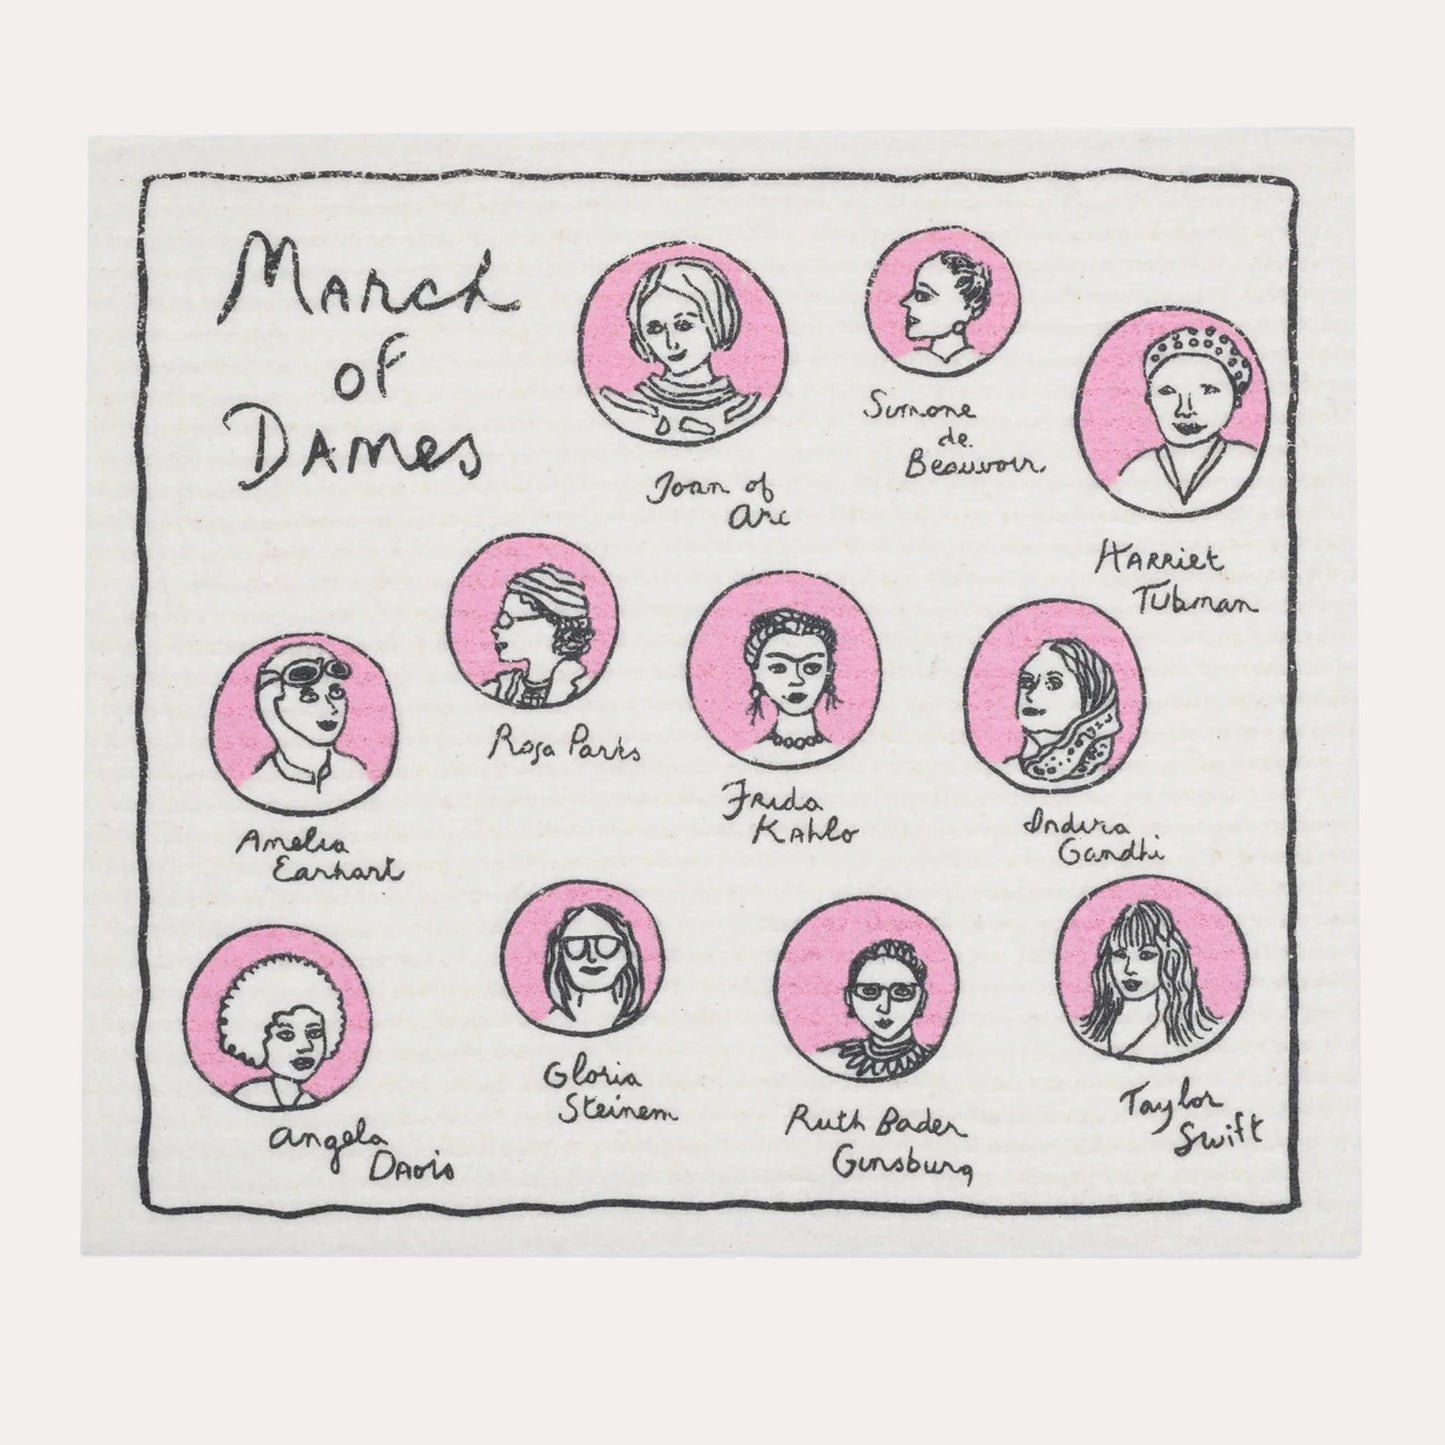 March
of
Dames
Joan of
Arc
Simone
de
Beauvoir
Harriet
Tubman
Rosa Parks
Amelia
Earhart
Frida
Kahlo
Indira
Gandhi
Angela
Davis
Gloria
Steinem
Ruth Bader
Ginsburg
Taylor
Swift